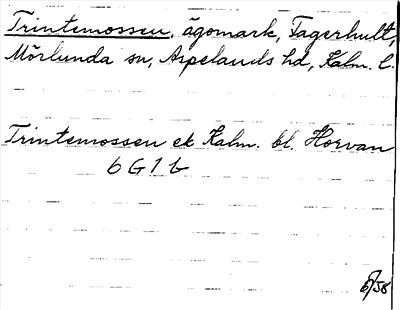 Trintemossen, ägomark, Fagerhult,
Mörlunda sn, Aspelands hd, Kalm. l.
Trintemossen ek Kalm. bl. Horvan
6 G 1 b
6/58